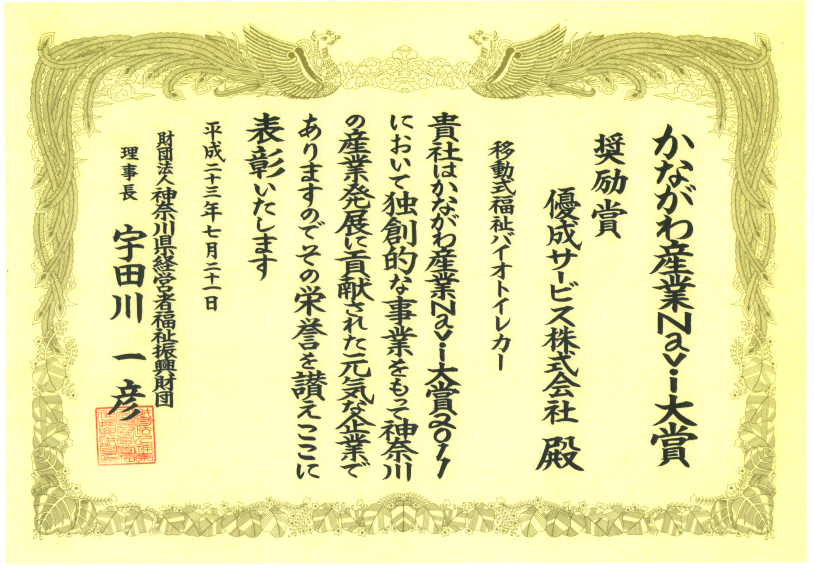 かながわ産業Navi大賞
奨励賞
優成サービス株式会社 殿
移動式福祉バイオトイレカー
貴社はかながわ産業Navi大賞2011
において独創的な事業をもって神奈川
の産業発展に貢献された元気な企業で
ありますのでその栄誉を讃えここに
表彰いたします
平成二十三年七月二十一日
財団法人神奈川県経営者福祉振興財団
理事長 宇田川 一彦